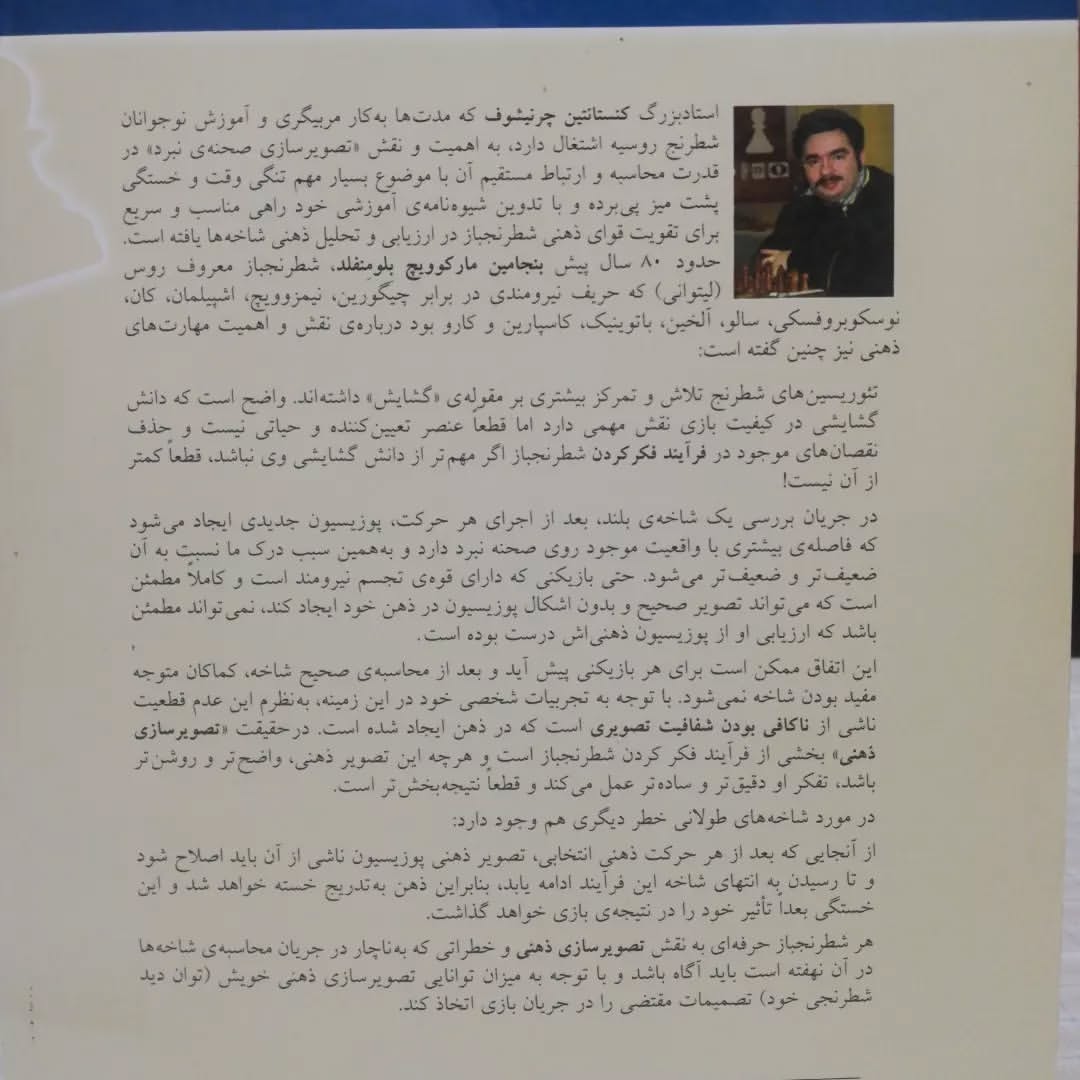 استادبزرگ کنستانتین چرنیشوف که مدت‌ها به‌کار مربیگری و آموزش نوجوانان
شطرنج روسیه اشتغال دارد، به اهمیت و نقش «تصویرسازی صحنه‌ی نبرد» در
قدرت محاسبه و ارتباط مستقیم آن با موضوع بسیار مهم تنگی وقت و خستگی
پشت میز پی‌برده و با تدوین شیوه‌نامه‌ی آموزشی خود راهی مناسب و سریع
برای تقویت قوای ذهنی شطرنجباز در ارزیابی و تحلیل ذهنی شاخه‌ها یافته است.
حدود ۸۰ سال پیش بنجامین مارکوویچ بلومِنفلد، شطرنجباز معروف روس
(لیتوانی) که حریف نیرومندی در برابر چیگورین، نیمزوویچ، اشپیلمان، کان،
نوسکوبروفسکی، سالو، آلخین، باتوینیک، کاسپارین و کارو بود درباره‌ی نقش و اهمیت مهارت‌های
ذهنی نیز چنین گفته است:
تئوریسین‌های شطرنج تلاش و تمرکز بیشتری بر مقوله‌ی «گشایش» داشته‌اند. واضح است که دانش
گشایشی در کیفیت بازی نقش مهمی دارد اما قطعاً عنصر تعیین‌کننده و حیاتی نیست و حذف
نقصان‌های موجود در فرآیند فکرکردن شطرنجباز اگر مهم‌تر از دانش گشایشی وی نباشد، قطعاً کمتر
از آن نیست!
در جریان بررسی یک شاخه‌ی بلند، بعد از اجرای هر حرکت، پوزیسیون جدیدی ایجاد می‌شود
که فاصله‌ی بیشتری با واقعیت موجود روی صحنه نبرد دارد و به‌همین سبب درک ما نسبت به آن
ضعیف‌تر و ضعیف‌تر می‌شود. حتی بازیکنی که دارای قوه‌ی تجسم نیرومند است و کاملاً مطمئن
است که می‌تواند تصویر صحیح و بدون اشکال پوزیسیون در ذهن خود ایجاد کند، نمی‌تواند مطمئن
باشد که ارزیابی او از پوزیسیون ذهنی‌اش درست بوده است.
این اتفاق ممکن است برای هر بازیکنی پیش آید و بعد از محاسبه‌ی صحیح شاخه، کماکان متوجه
مفید بودن شاخه نمی‌شود. با توجه به تجربیات شخصی خود در این زمینه، به‌نظرم این عدم قطعیت
ناشی از ناکافی بودن شفافیت تصویری است که در ذهن ایجاد شده است. درحقیقت «تصویرسازی
ذهنی» بخشی از فرآیند فکر کردن شطرنجباز است و هرچه این تصویر ذهنی، واضح‌تر و روشن‌تر
باشد، تفکر او دقیق‌تر و ساده‌تر عمل می‌کند و قطعاً نتیجه‌بخش‌تر است.
در مورد شاخه‌های طولانی خطر دیگری هم وجود دارد:
از آنجایی که بعد از هر حرکت ذهنی انتخابی، تصویر ذهنی پوزیسیون ناشی از آن باید اصلاح شود
و تا رسیدن به انتهای شاخه این فرآیند ادامه یابد، بنابراین ذهن به‌تدریج خسته خواهد شد و این
خستگی بعداً تأثیر خود را در نتیجه‌ی بازی خواهد گذاشت.
هر شطرنجباز حرفه‌ای به نقش تصویرسازی ذهنی و خطراتی که به‌ناچار در جریان محاسبه‌ی شاخه‌ها
در آن نهفته است باید آگاه باشد و با توجه به میزان توانایی تصویرسازی ذهنی خویش (توان دید
شطرنجی خود) تصمیمات مقتضی را در جریان بازی اتخاذ کند.